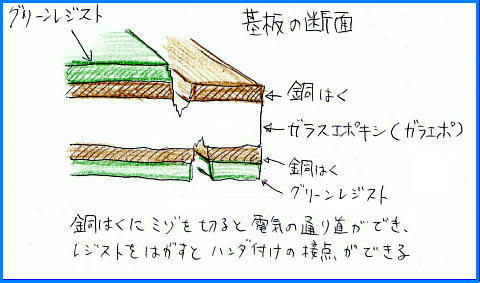 グリーンレジスト
基板の断面
銅はく
ガラスエポキシ(ガラエポ)
銅はく
グリーンレジスト
銅はくにミゾを切ると電気の通り道ができ、
レジストをはがすとハンダ付けの接点ができる